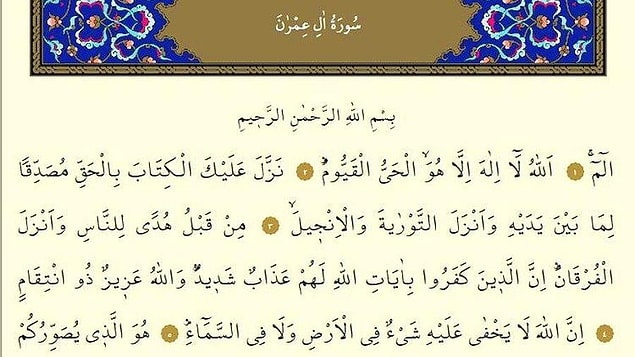 سُورَةُ اٰلِ عِمْرٰنَ
بِسْمِ اللّٰهِ الرَّحْمٰنِ الرَّح۪يمِ
الٓمّٓۚ ﴿١﴾ اَللّٰهُ لَٓا اِلٰهَ اِلَّا هُوَۙ الْحَيُّ الْقَيُّومُۜ ﴿٢﴾ نَزَّلَ عَلَيْكَ الْكِتَابَ بِالْحَقِّ مُصَدِّقًا
لِمَا بَيْنَ يَدَيْهِ وَاَنْزَلَ التَّوْرٰيةَ وَالْاِنْج۪يلَۙ ﴿٣﴾ مِنْ قَبْلُ هُدًى لِلنَّاسِ وَاَنْزَلَ
الْفُرْقَانَۜ اِنَّ الَّذ۪ينَ كَفَرُوا بِاٰيَاتِ اللّٰهِ لَهُمْ عَذَابٌ شَد۪يدٌۜ وَاللّٰهُ عَز۪يزٌ ذُو انْتِقَامٍ
﴿٤﴾ اِنَّ اللّٰهَ لَا يَخْفٰى عَلَيْهِ شَيْءٌ فِي الْاَرْضِ وَلَا فِي السَّمَٓاءِۜ ﴿٥﴾ هُوَ الَّذ۪ي يُصَوِّرُكُمْ